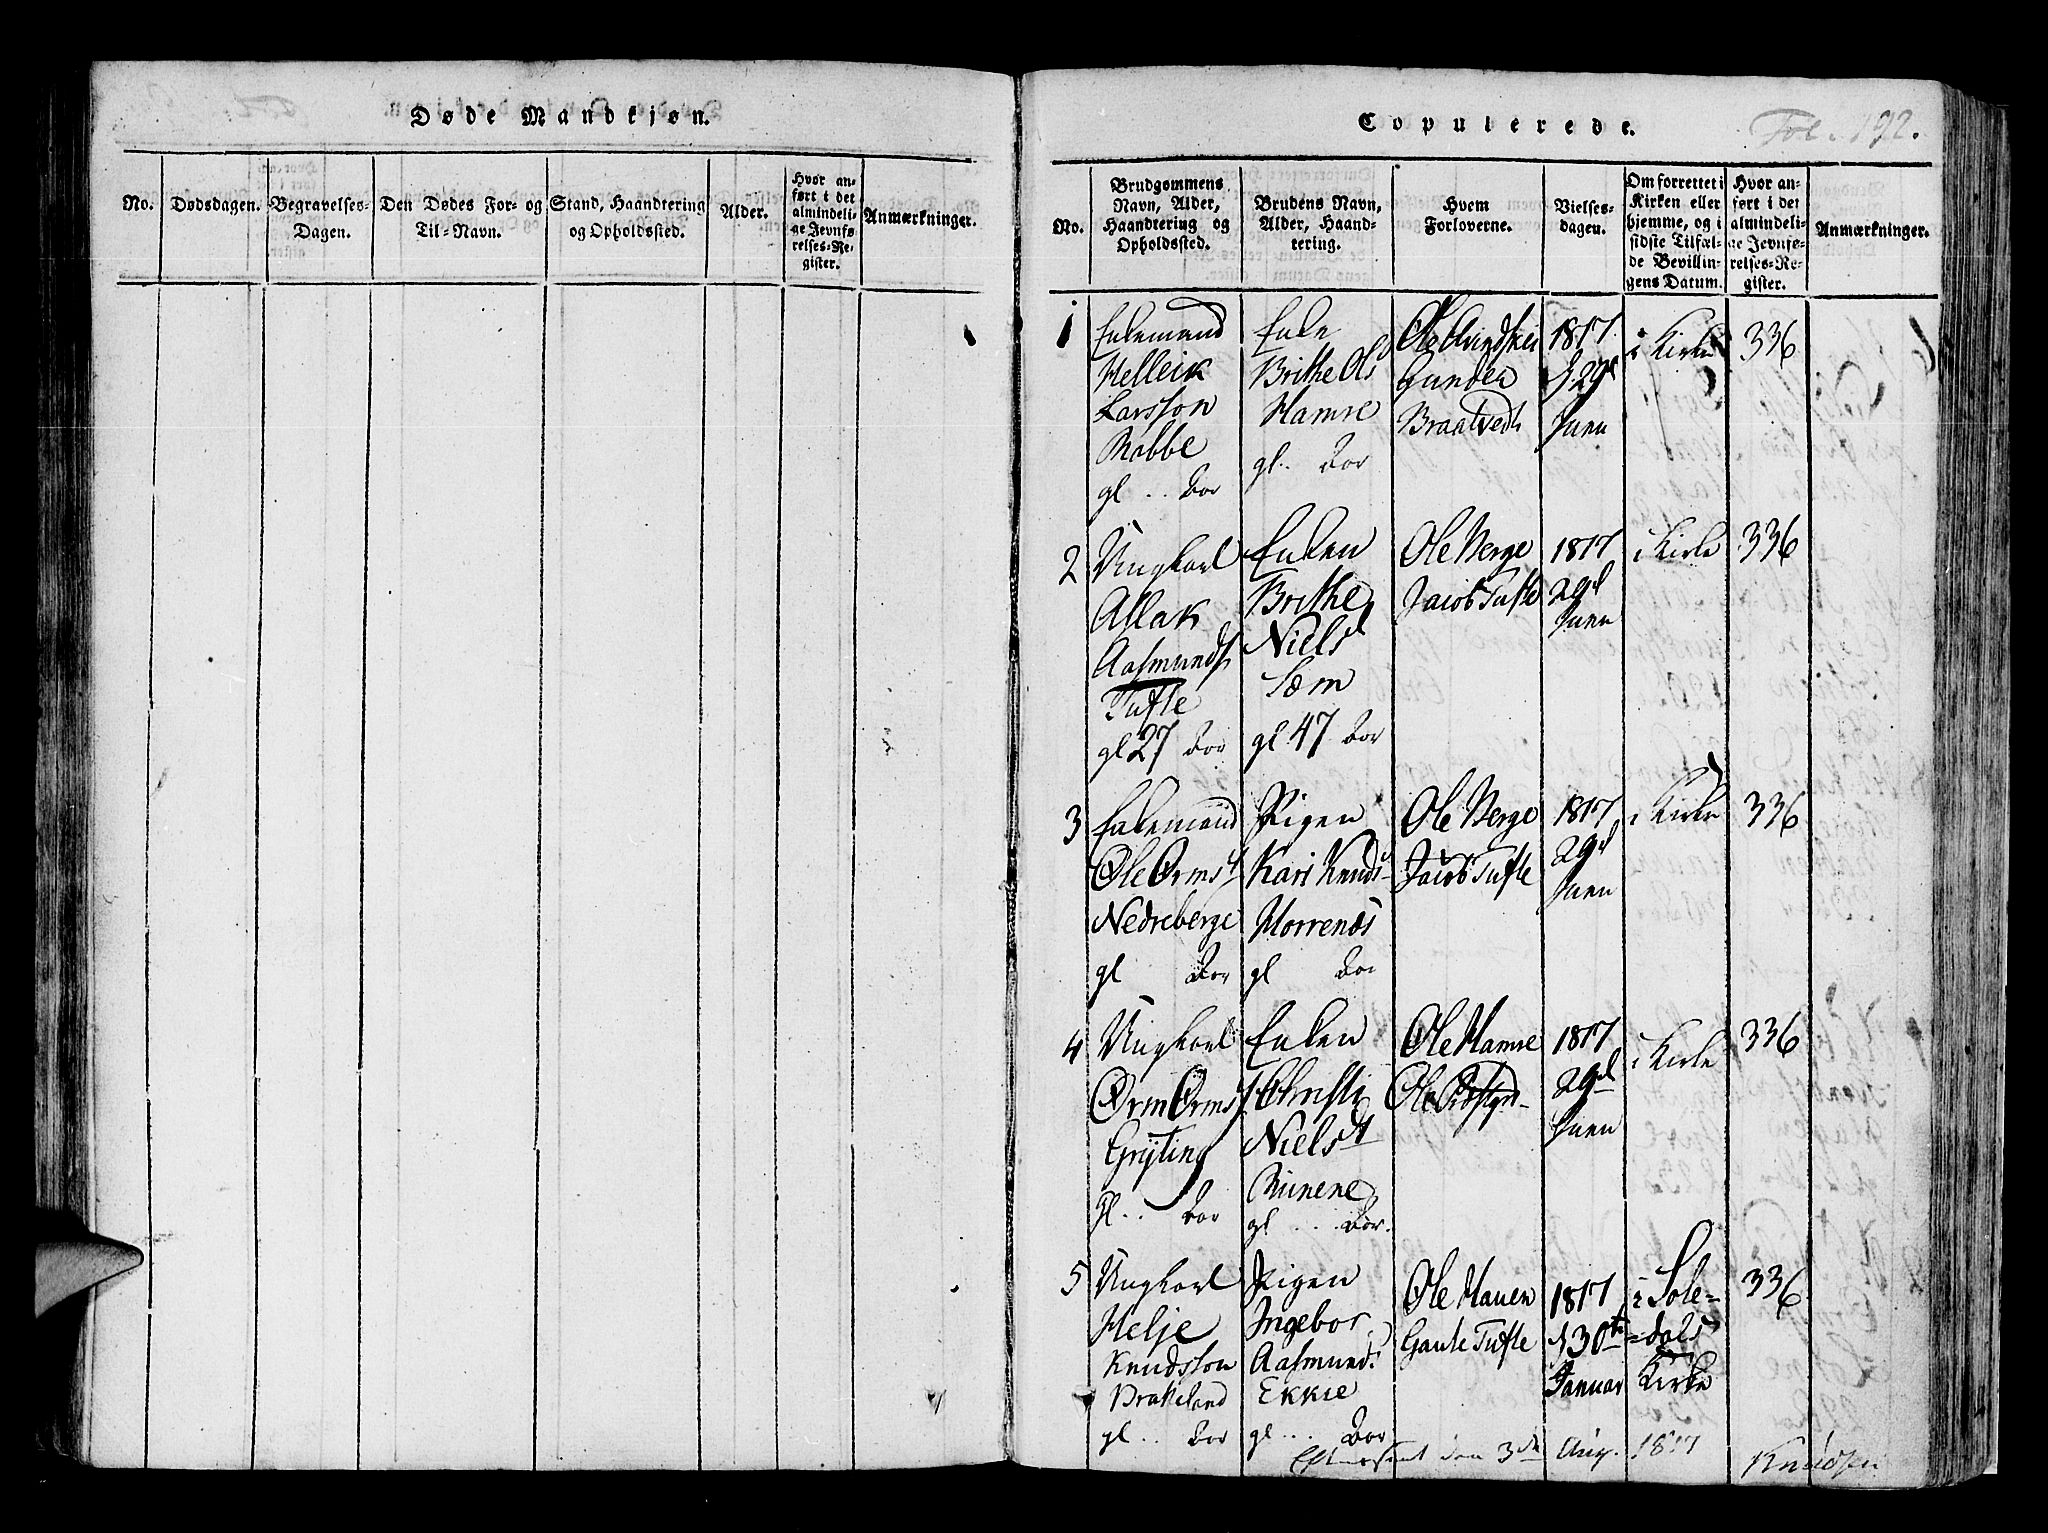 Døde Mandkjøn.
No.
Dødsdagen.
Begravelses-
Dagen.
Den Dødes For- og
Til-Navn.
Stand, Haandtering
og Opholdssted.
Alder.
Hvor an-
ført i det
almindeli-
ge Jevnfø-
relses-Re-
gister.
Anmærkninger.
Copulerede.
Fol. 192.
No.
Brudgommens
Navn, Alder,
Haandtering og
Opholdssted.
Brudens Navn,
Alder, Haand-
tering.
Hvem
Forloverne.
Vielses-
dagen.
Om forrettet i
Kirken eller
hjemme, og i
sidste Tilfæl-
de Bevillin-
gens Datum.
Hvor an-
ført i det
almindeli-
ge Jevnfø-
relses-Re-
gister.
Anmærkninger.
1
Enkemand
Helleik
Larsson
Nobbe
gl .. Aar
Enke
Brithe Ols
Hamre
gl. Aar
Gunder
Braatvedt
1817
d 29d
Juni
i Kirke
336
2
Ungkarl
Aslak
Aasmunds
Tufte
gl 27 Aar
Enken
Brithe
Nielsd
Sæm
gl 47 Aar
Ole Berge
Jacob Tufte
1817
29d
Juni
i Kirke
336
3
Enkemand
Ole Orms
Nedreberge
gl Aar
Pigen
Kari Knuds
Horrenæs
gl Aar
Ole Berge
Jacob Tufte
1817
29d
Juni
i Kirke
336
4
Ungkarl
Orm Orms
Grÿting
gl .. Aar
Enken
Christi
Nielsd
Bunene
gl ... Aar.
Ole Hamre
Ole
1817
29d
Juni
i Kirke
336
5
Ungkarl
Helje
Knudsson
Brakeland
gl .. Aar
Pigen
Ingebor
Aasmunds
Ekkie
gl ... Aar
Ole Hauen
Gaute Tufte
1817
d 30te
Januar
i Sole-
dals
Kirke
336
Efterseet den 3de Aug. 1817
Knudsen